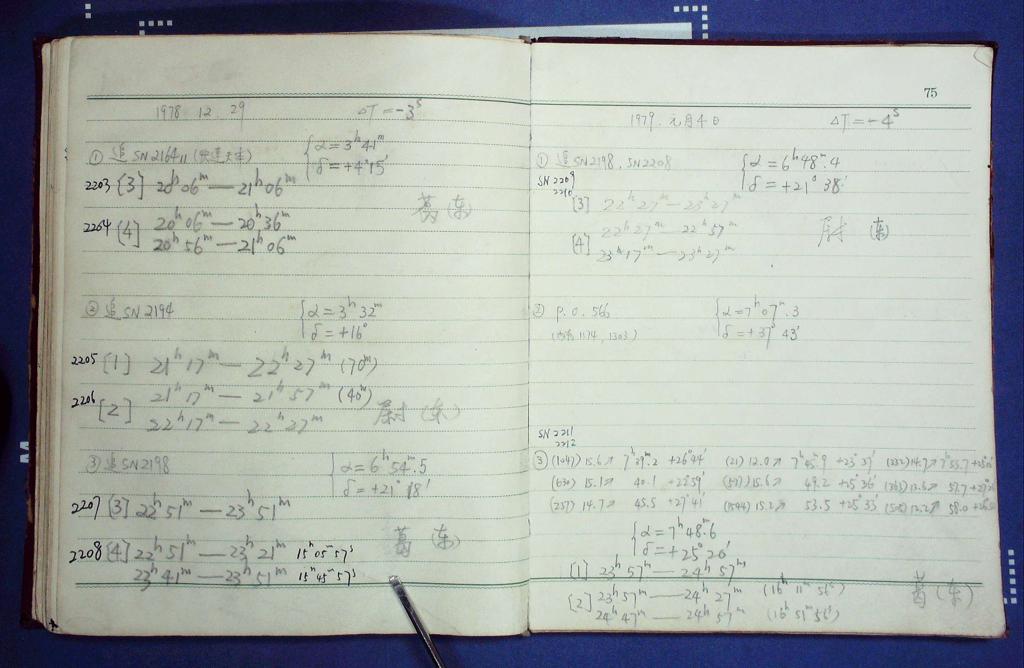 1978 12. 29 ΔT=-3ˢ
① 追 SN2164
α=3ʰ41ᵐ
δ=+4°15′
2203 [3] 20ʰ06ᵐ—21ʰ06ᵐ
葛(东)
2204 [4] 20ʰ06ᵐ—20ʰ36ᵐ
20ʰ56ᵐ—21ʰ06ᵐ
② 追 SN2194
α=3ʰ32ᵐ
δ=+16°
2205 [1] 21ʰ17ᵐ—22ʰ27ᵐ (70ᵐ)
2206 [2] 21ʰ17ᵐ—21ʰ57ᵐ (40ᵐ)
22ʰ17ᵐ—22ʰ27ᵐ
尉(东)
③ 追 SN2198
α=6ʰ54ᵐ.5
δ=+21° 18′
2207 [3] 22ʰ51ᵐ—23ʰ51ᵐ
2208 [4] 22ʰ51ᵐ—23ʰ21ᵐ 15ʰ05ᵐ57ˢ
葛(东)
23ʰ41ᵐ—23ʰ51ᵐ 15ʰ45ᵐ57ˢ
75
1979. 元月4日 ΔT=-4ˢ
① 追 SN2198, SN2208
α=6ʰ48ᵐ.4
δ=+21° 38′
SN2209
2210
[3] 22ʰ27ᵐ—23ʰ27ᵐ
[4] 22ʰ27ᵐ—22ʰ57ᵐ
23ʰ17ᵐ—23ʰ27ᵐ
尉(东)
② P.O. 566
α=7ʰ07ᵐ.3
δ=+37° 43′
1174, 1303)
SN2211
2212
③ (1047) 15.6↗ 7ʰ39ᵐ.2 +26°44′ (21) 12.0↗ 7ʰ45ᵐ.9 +23°37′
(630) 15.1↗ 40.1 +22°59′ 49.2 +25°36′
(237) 14.7↗ 45.5 +27°41′ (1544) 15.2↗ 53.5 +25°33′
α=7ʰ48ᵐ.6
δ=+25°26′
[1] 23ʰ57ᵐ—24ʰ57ᵐ
[2] 23ʰ57ᵐ—24ʰ27ᵐ (16ʰ11ᵐ56ˢ)
24ʰ47ᵐ—24ʰ57ᵐ (16ʰ51ᵐ56ˢ)
葛(东)